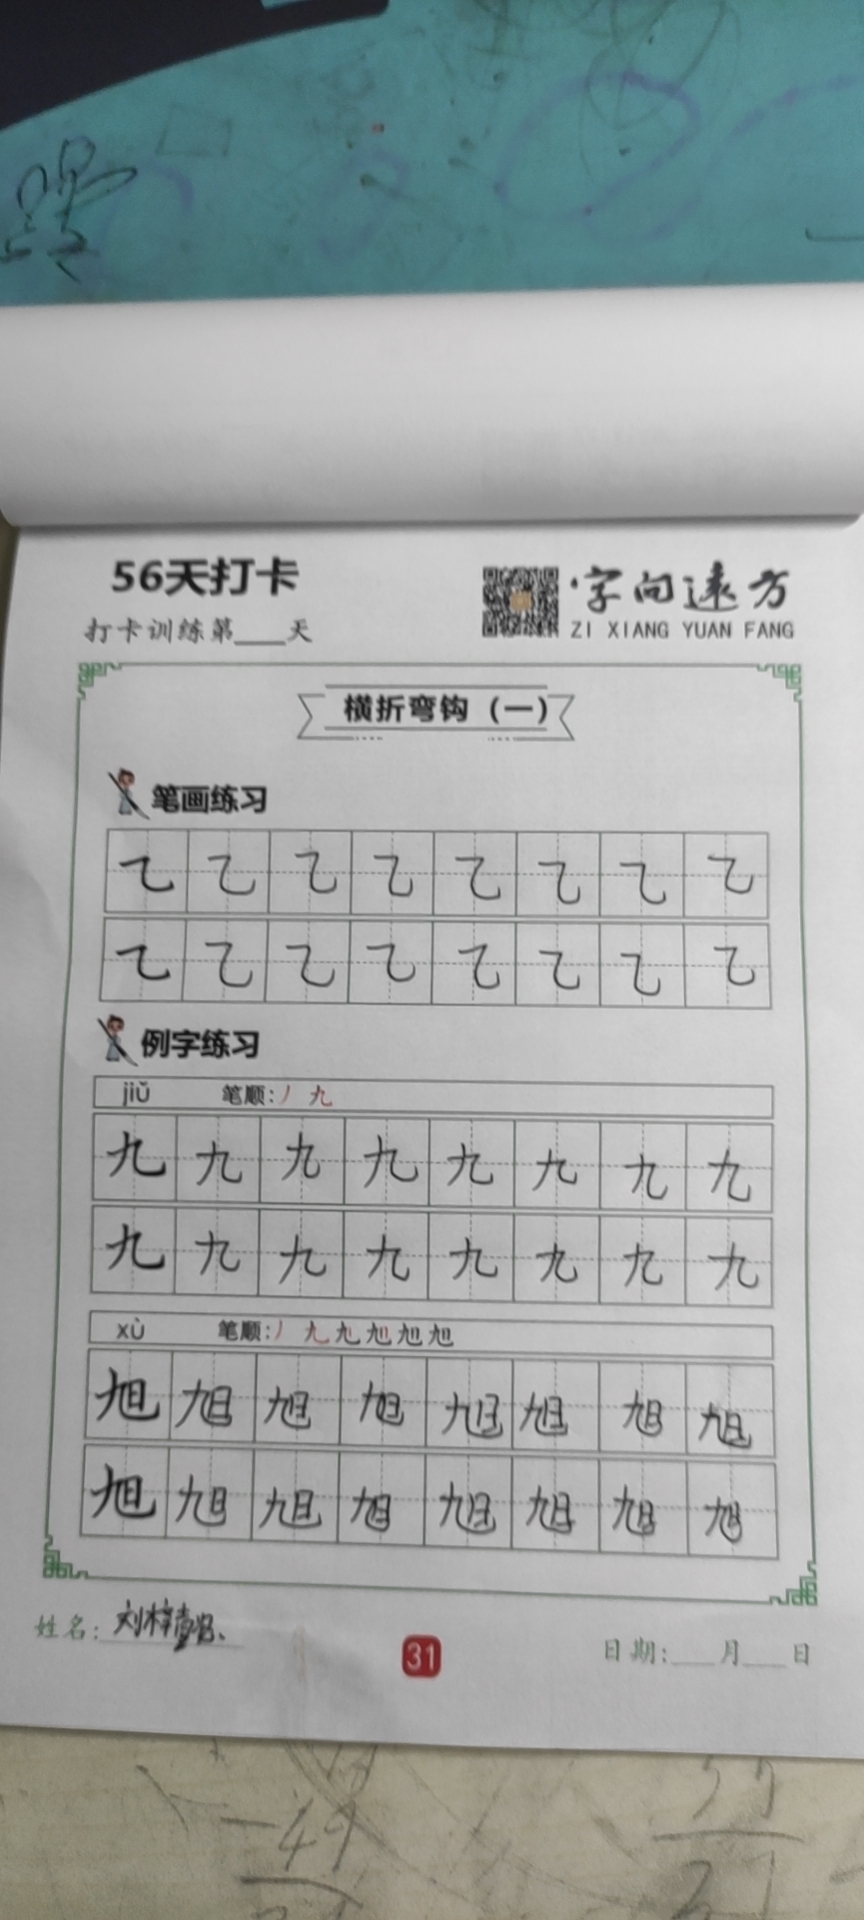 56天打卡
打卡训练第___天
字向远方
ZI XIANG YUAN FANG
横折弯钩（一）
笔画练习
乙 乙 乙 乙 乙 乙 乙 乙
乙 乙 乙 乙 乙 乙 乙 乙
例字练习
jiǔ 笔顺: 丿 九
九 九 九 九 九 九 九 九
九 九 九 九 九 九 九 九
xù 笔顺:
旭 旭 旭 旭 旭 旭 旭 旭
旭 旭 旭 旭 旭 旭 旭 旭
姓名: 刘梓
31
日期:___月___日
-49